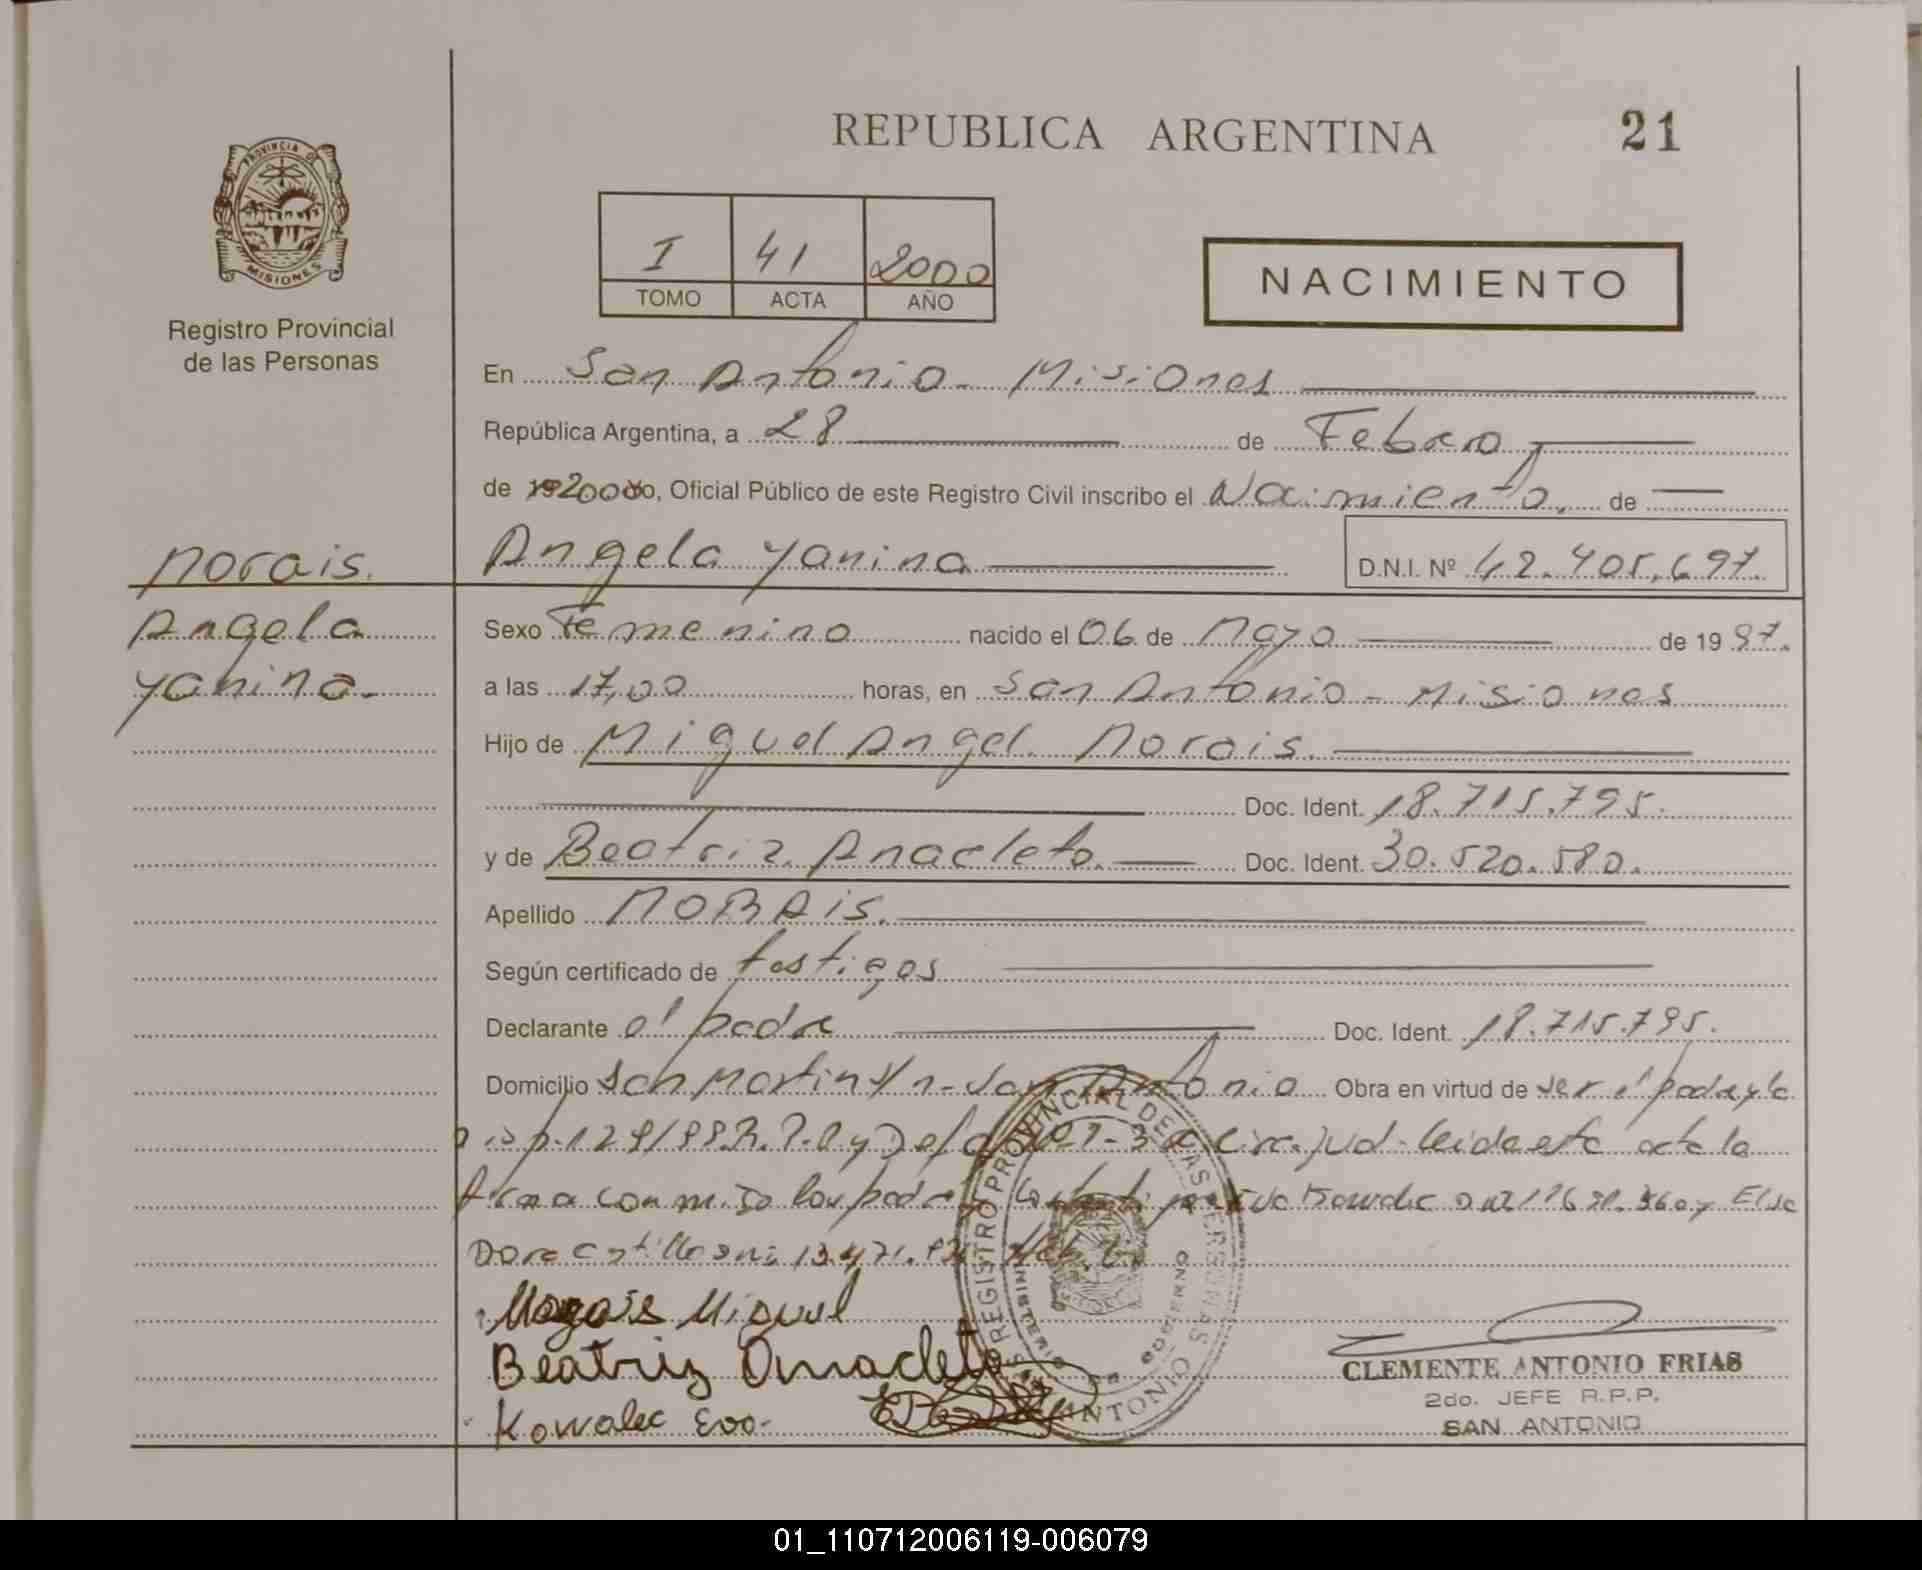 REPUBLICA ARGENTINA 21
PROVINCIA DE
MISIONES
Registro Provincial
de las Personas
I 41 2000
TOMO ACTA AÑO
NACIMIENTO
En San Antonio - Misiones
República Argentina, a 28 de Febrero
de 2000, Oficial Público de este Registro Civil inscribo el Nacimiento. de
Morais. Angela Yanina D.N.I. Nº 42.405.697.
Angela Sexo Femenino nacido el 06 de Mayo de 1997.
Yanina. a las 17,00 horas, en San Antonio - Misiones
Hijo de Miguel Angel Morais.
Doc. Ident. 18.715.795.
y de Beatriz Anacleto. Doc. Ident. 30.520.580.
Apellido MORAis.
Según certificado de testigos
Declarante el padre Doc. Ident. 18.715.795.
Domicilio San Martin s/n - San Antonio Obra en virtud de ser el padre y la
Leida esta acta la
firma conmigo los padres Eva Kowalec y Elsa
Dora Castillo DNI 13.471.
Morais Miguel
Beatriz Anacleto
Kowalec Eva.
REGISTRO PROVINCIAL DE LAS PERSONAS
MINISTERIO DE GOBIERNO
SAN ANTONIO
CLEMENTE ANTONIO FRIAS
2do. JEFE R.P.P.
SAN ANTONIO
01_110712006119-006079